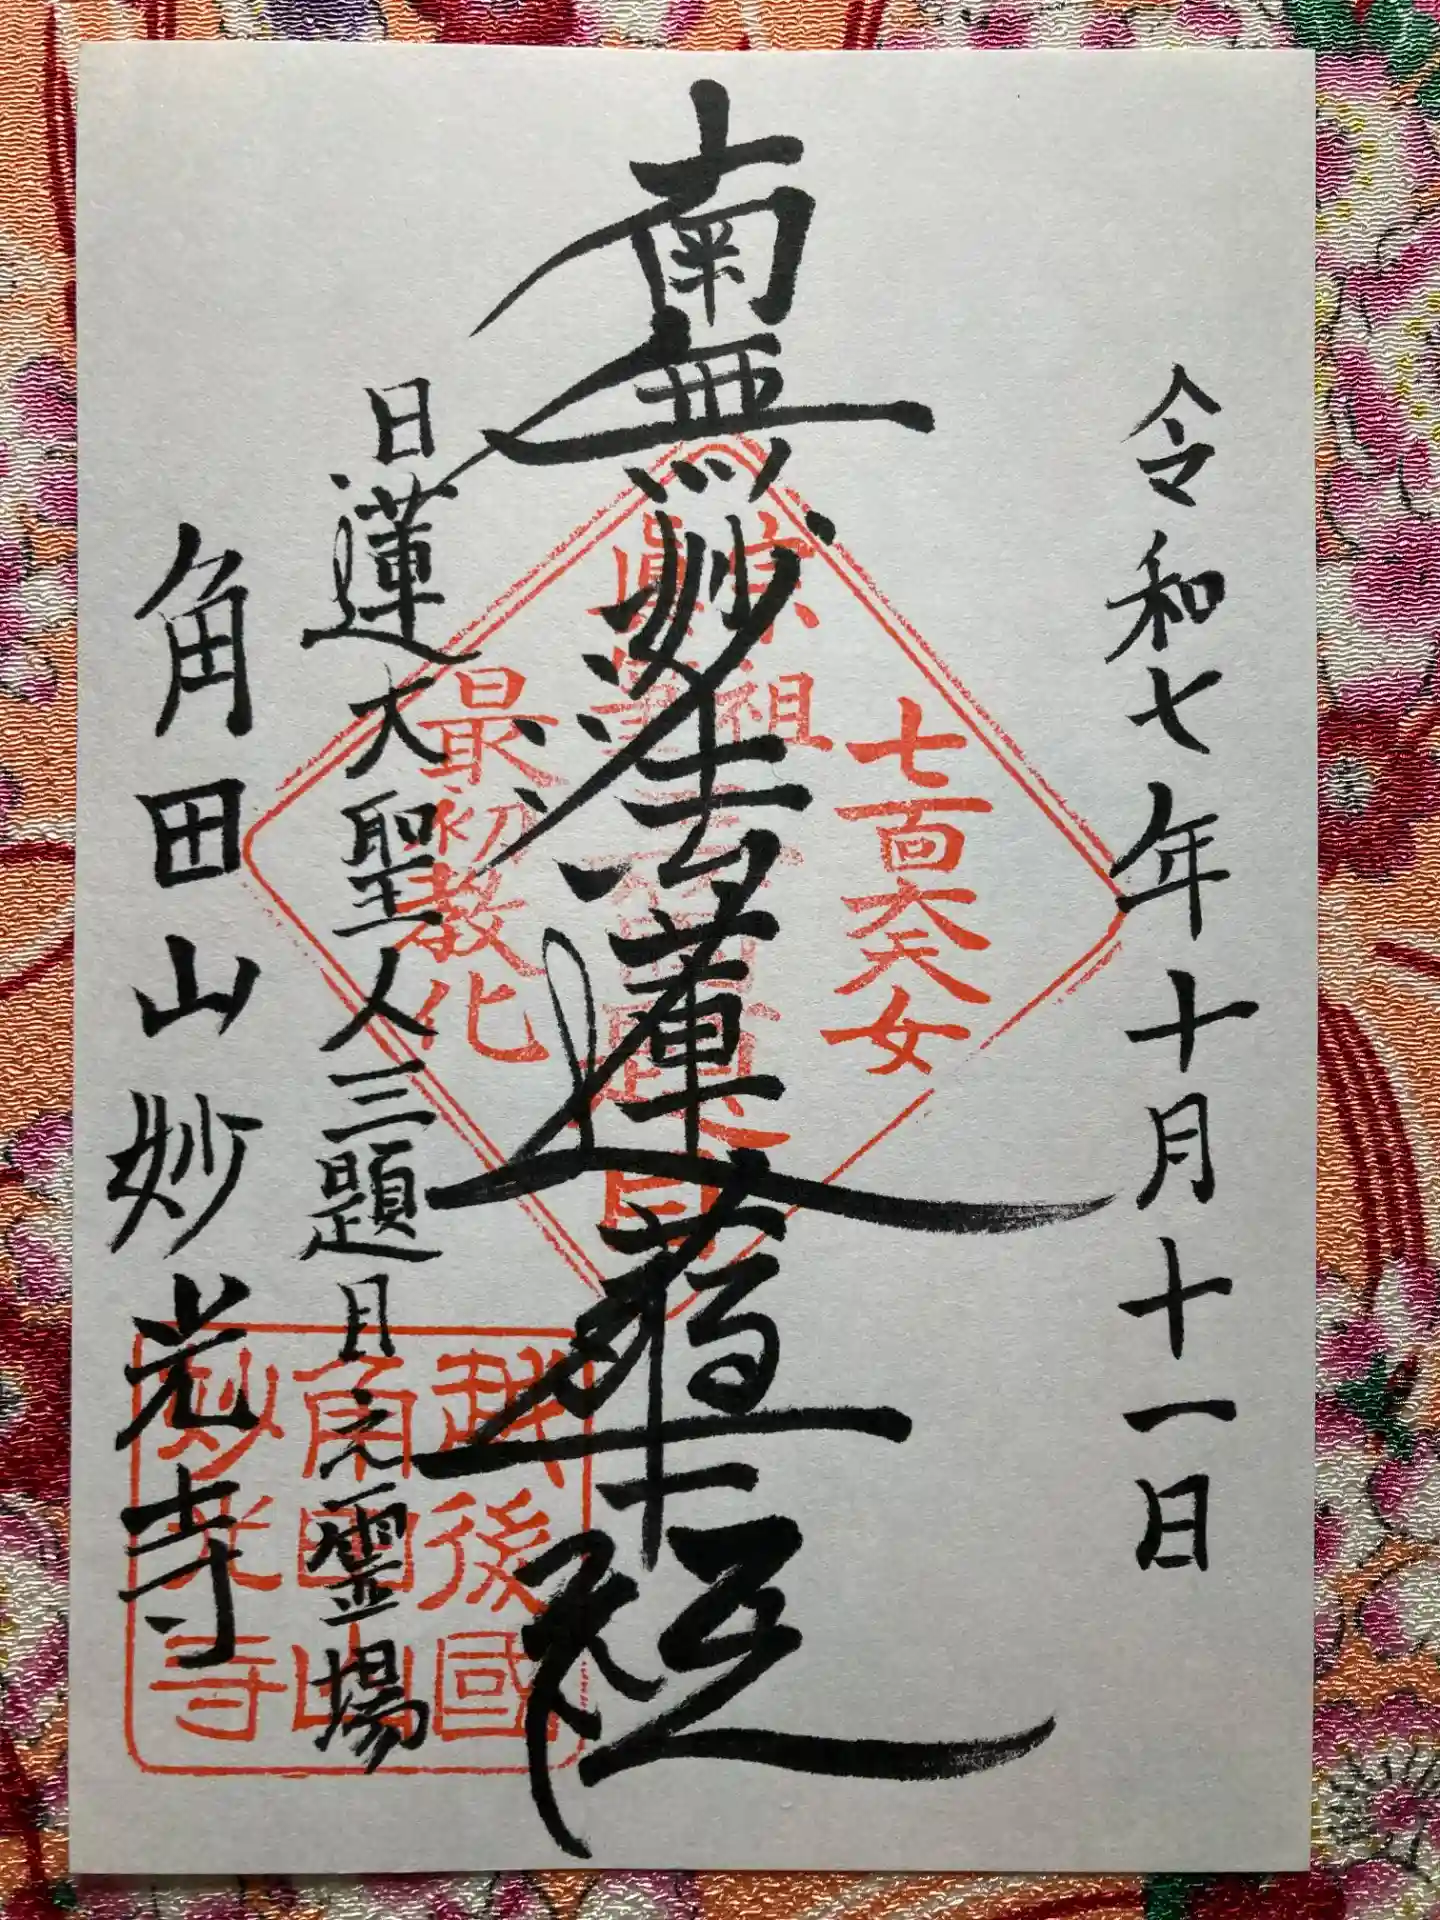 令和七年十月十一日
南無妙法蓮華経
日蓮大聖人三題目之霊場
角田山妙光寺
七百六天女
宗祖
最初教化
越後國
角田山
妙光寺